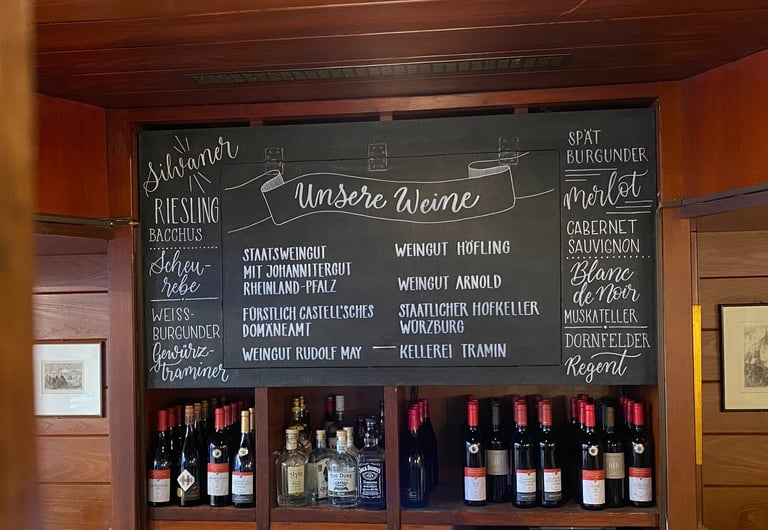 Silvaner
RIESLING
BACCHUS
Scheu-
rebe
WEISS-
BURGUNDER
Gewürz-
traminer
Unsere Weine
STAATSWEINGUT
MIT JOHANNITERGUT
RHEINLAND-PFALZ
FÜRSTLICH CASTELL'SCHES
DOMÄNEAMT
WEINGUT RUDOLF MAY
WEINGUT HÖFLING
WEINGUT ARNOLD
STAATLICHER HOFKELLER
WÜRZBURG
KELLEREI TRAMIN
SPÄT
BURGUNDER
Merlot
CABERNET
SAUVIGNON
Blanc
de Noir
MUSKATELLER
DORNFELDER
Regent
THE DUKE
JACK DANIEL'S